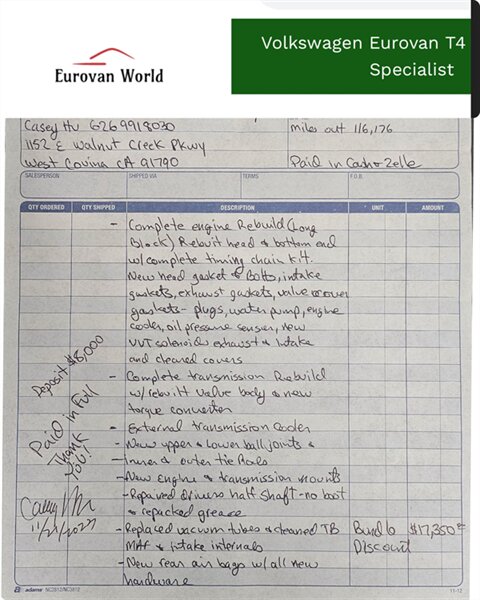 Eurovan World
Volkswagen Eurovan T4
Specialist
Casey Hu 6269918030
miles out 116,176
1152 E Walnut Creek Pkwy
West Covina CA 91790
Paid in Cash & Zelle
SALESPERSON SHIPPED VIA TERMS F.O.B.
QTY ORDERED QTY SHIPPED DESCRIPTION UNIT AMOUNT
- Complete engine Rebuild (Long
Block) Rebuit head & bottom end
w/ complete timing chain kit.
New head gasket & Bolts, intake
gaskets, exhaust gaskets, valve cover
gaskets - plugs, water pump, engine
cooler, oil pressure senser, new
VVT solenoids exhaust & intake
and cleaned covers
Deposit $8,000
- Complete transmission Rebuild
w/ rebuilt valve body & new
torque converter
Paid in Full
Thank
You!
- External transmission Cooler
- New upper & Lower ball joints &
- inner & outer tie Rods
- New engine & transmission mounts
- Repaired drivers half shaft - no boot
& repacked grease
11/21/2023
- Replaced vacuum tubes & cleaned TB Bundle $17,350
MAF & intake internals Discount
- New rear air bags w/ all new
hardware
adams NC2812/NC3812 11-12